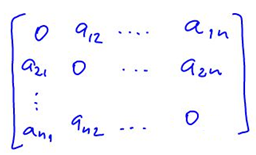 0 a₁₂ .... a₁ₙ
a₂₁ 0 ... a₂ₙ
⋮
aₙ₁ aₙ₂ ... 0